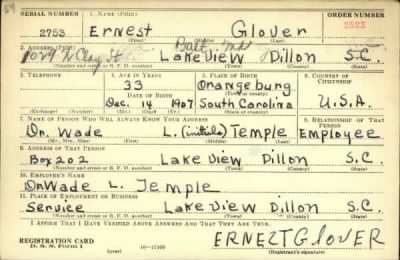 SERIAL NUMBER 1. NAME (Print) ORDER NUMBER
2753 Ernest Glover 2523
(First) (Middle) (Last)
2. ADDRESS (Print)
1029 McClay St Balt. Md
Lakeview Dillon S.C.
(Number and street or R. F. D. number) (Town) (County) (State)
3. TELEPHONE 4. AGE IN YEARS 5. PLACE OF BIRTH 6. COUNTRY OF CITIZENSHIP
33 Orangeburg
DATE OF BIRTH (Town or county)
Dec. 14 1907 South Carolina U.S.A.
(Exchange) (Number) (Mo.) (Day) (Yr.) (State or country)
7. NAME OF PERSON WHO WILL ALWAYS KNOW YOUR ADDRESS 8. RELATIONSHIP OF THAT PERSON
Dr. Wade L. (initials) Temple Employee
(Mr., Mrs., Miss) (First) (Middle) (Last)
9. ADDRESS OF THAT PERSON
Box 202 Lake View Dillon S.C.
(Number and street or R. F. D. number) (Town) (County) (State)
10. EMPLOYER'S NAME
Dr Wade L. Temple
11. PLACE OF EMPLOYMENT OR BUSINESS
Service Lake View Dillon S.C.
(Number and street or R. F. D. number) (Town) (County) (State)
I AFFIRM THAT I HAVE VERIFIED ABOVE ANSWERS AND THAT THEY ARE TRUE.
REGISTRATION CARD
D. S. S. Form 1 (over) 16-17105
ERNEZT GloVER
(Registrant's signature)